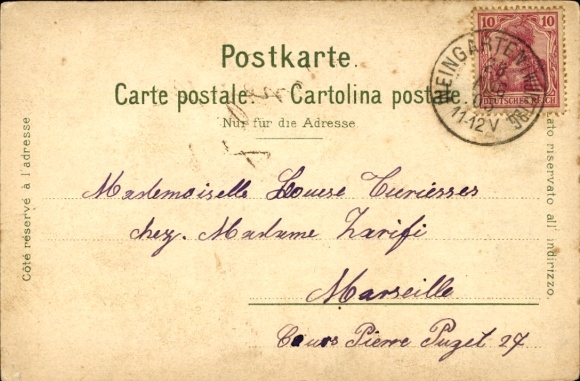 Postkarte.
Carte postale. Cartolina postale.
Nur für die Adresse
Côté réservé à l'adresse
Lato riservato all' indirizzo.
10 10
DEUTSCHES REICH
WEINGARTEN
11-12 V
Mademoiselle Louise
chez. Madame Zarifi
Marseille
Cours Pierre Puget 24